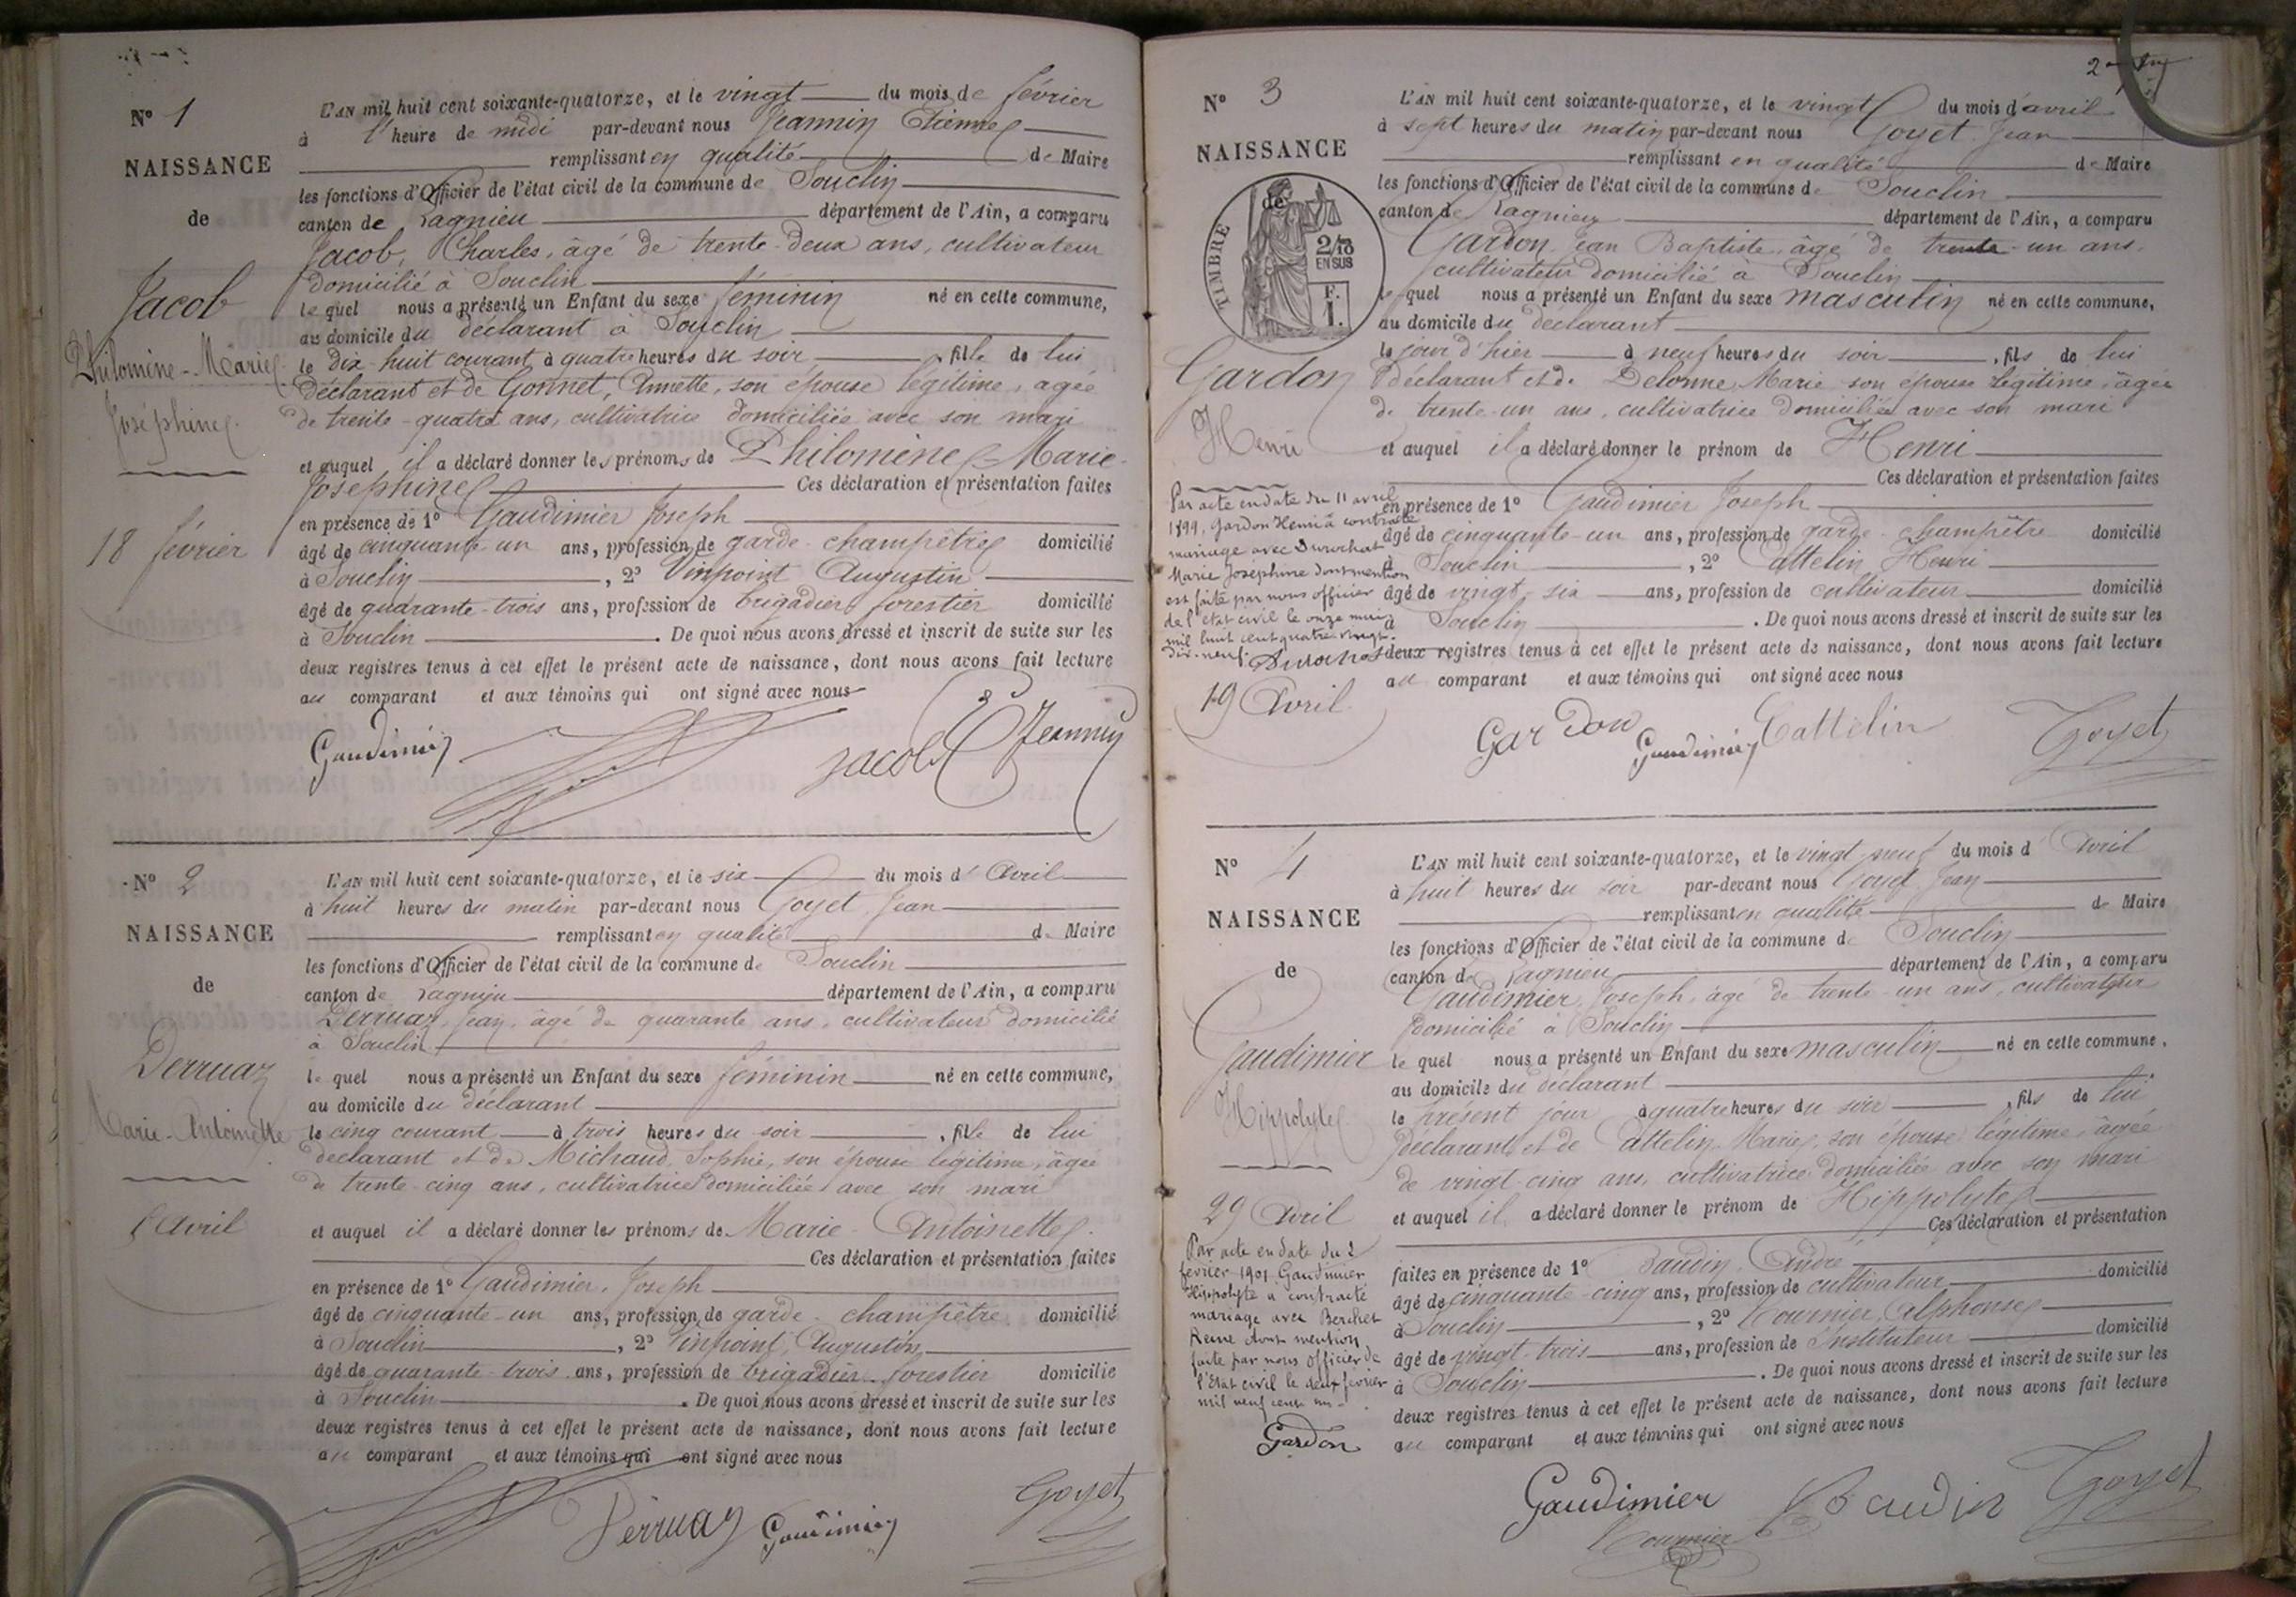 N° 1
NAISSANCE
de
Jacob
Philomène-Marie
Joséphine
18 février
L'AN mil huit cent soixante-quatorze, et le vingt du mois de février
à l'heure de midi par-devant nous Jeannin Etienne
remplissant en qualité de Maire
les fonctions d'Officier de l'état civil de la commune de Souclin
canton de Lagnieu département de l'Ain, a comparu
Jacob, Charles, âgé de trente-deux ans, cultivateur
domicilié à Souclin
lequel nous a présenté un Enfant du sexe féminin né en cette commune,
au domicile du déclarant à Souclin
le dix-huit courant à quatre heures du soir, fille de lui
déclarant et de Gonnet, Annette, son épouse légitime, agée
de trente-quatre ans, cultivatrice domiciliée avec son mari
et auquel il a déclaré donner les prénoms de Philomène-Marie-
Joséphine Ces déclaration et présentation faites
en présence de 1° Gaudimier Joseph
âgé de cinquante-un ans, profession de garde-champêtre domicilié
à Souclin, 2° Vinpoint Augustin
âgé de quarante-trois ans, profession de brigadier forestier domicilié
à Souclin. De quoi nous avons dressé et inscrit de suite sur les
deux registres tenus à cet effet le présent acte de naissance, dont nous avons fait lecture
au comparant et aux témoins qui ont signé avec nous
Gaudimier Jacob E Jeannin
N° 2
NAISSANCE
de
Derruaz
Marie-Antoinette
Avril
L'AN mil huit cent soixante-quatorze, et le six du mois d'Avril
à huit heures du matin par-devant nous Goyet Jean
remplissant en qualité de Maire
les fonctions d'Officier de l'état civil de la commune de Souclin
canton de Lagnieu département de l'Ain, a comparu
Derruaz, Jean, âgé de quarante ans, cultivateur domicilié
à Souclin
lequel nous a présenté un Enfant du sexe féminin né en cette commune,
au domicile du déclarant
le cinq courant à trois heures du soir, fille de lui
déclarant et de Michaud Sophie, son épouse légitime, âgée
de trente-cinq ans, cultivatrice domiciliée avec son mari
et auquel il a déclaré donner les prénoms de Marie-Antoinette
Ces déclaration et présentation faites
en présence de 1° Gaudimier, Joseph
âgé de cinquante-un ans, profession de garde-champêtre domicilié
à Souclin, 2° Vinpoint, Augustin
âgé de quarante-trois ans, profession de brigadier forestier domicilié
à Souclin. De quoi nous avons dressé et inscrit de suite sur les
deux registres tenus à cet effet le présent acte de naissance, dont nous avons fait lecture
au comparant et aux témoins qui ont signé avec nous
Derruaz Gaudimier Goyet
2
N° 3
NAISSANCE
de
TIMBRE
2/10
EN SUS
F.
1.
Gardon
Henri
Par acte en date du 11 avril
1899, Gardon Henri à contracté
mariage avec Durochat
Marie Joséphine dont mention
est faite par nous officier
de l'état civil le onze mai
mil huit cent quatre-vingt-
dix-neuf. Durochat
19 Avril
L'AN mil huit cent soixante-quatorze, et le vingt du mois d'avril
à sept heures du matin par-devant nous Goyet Jean
remplissant en qualité de Maire
les fonctions d'Officier de l'état civil de la commune de Souclin
canton de Lagnieu département de l'Ain, a comparu
Gardon Jean Baptiste, âgé de trente-un ans,
cultivateur domicilié à Souclin
lequel nous a présenté un Enfant du sexe masculin né en cette commune,
au domicile du déclarant
le jour d'hier à neuf heures du soir, fils de lui
déclarant et de Delonne Marie son épouse légitime, âgée
de trente-un ans, cultivatrice domiciliée avec son mari
et auquel il a déclaré donner le prénom de Henri
Ces déclaration et présentation faites
en présence de 1° Gaudimier Joseph
âgé de cinquante-un ans, profession de garde-champêtre domicilié
à Souclin, 2° Cattelin Henri
âgé de vingt-six ans, profession de cultivateur domicilié
à Souclin. De quoi nous avons dressé et inscrit de suite sur les
deux registres tenus à cet effet le présent acte de naissance, dont nous avons fait lecture
au comparant et aux témoins qui ont signé avec nous
Gardon Gaudimier Cattelin Goyet
N° 4
NAISSANCE
de
Gaudimier
Hippolyte
29 Avril
Par acte en date du 2
février 1901 Gaudimier
Hippolyte a contracté
mariage avec Berchet
Reine dont mention
faite par nous Officier de
l'Etat civil le deux février
mil neuf cent un-
Gardon
L'AN mil huit cent soixante-quatorze, et le vingt neuf du mois d'Avril
à huit heures du soir par-devant nous Goyet Jean
remplissant en qualité de Maire
les fonctions d'Officier de l'état civil de la commune de Souclin
canton de Lagnieu département de l'Ain, a comparu
Gaudimier, Joseph, âgé de trente-un ans, cultivateur
domicilié à Souclin
lequel nous a présenté un Enfant du sexe masculin né en cette commune,
au domicile du déclarant
le présent jour à quatre heures du soir, fils de lui
déclarant et de Cattelin Marie, son épouse légitime, âgée
de vingt-cinq ans, cultivatrice domiciliée avec son mari
et auquel il a déclaré donner le prénom de Hippolyte
Ces déclaration et présentation
faites en présence de 1° Baudin, André domicilié
âgé de cinquante-cinq ans, profession de cultivateur
à Souclin, 2° Cournier, Alphonse
âgé de vingt-trois ans, profession de Instituteur domicilié
à Souclin. De quoi nous avons dressé et inscrit de suite sur les
deux registres tenus à cet effet le présent acte de naissance, dont nous avons fait lecture
au comparant et aux témoins qui ont signé avec nous
Gaudimier Baudin Goyet
Cournier